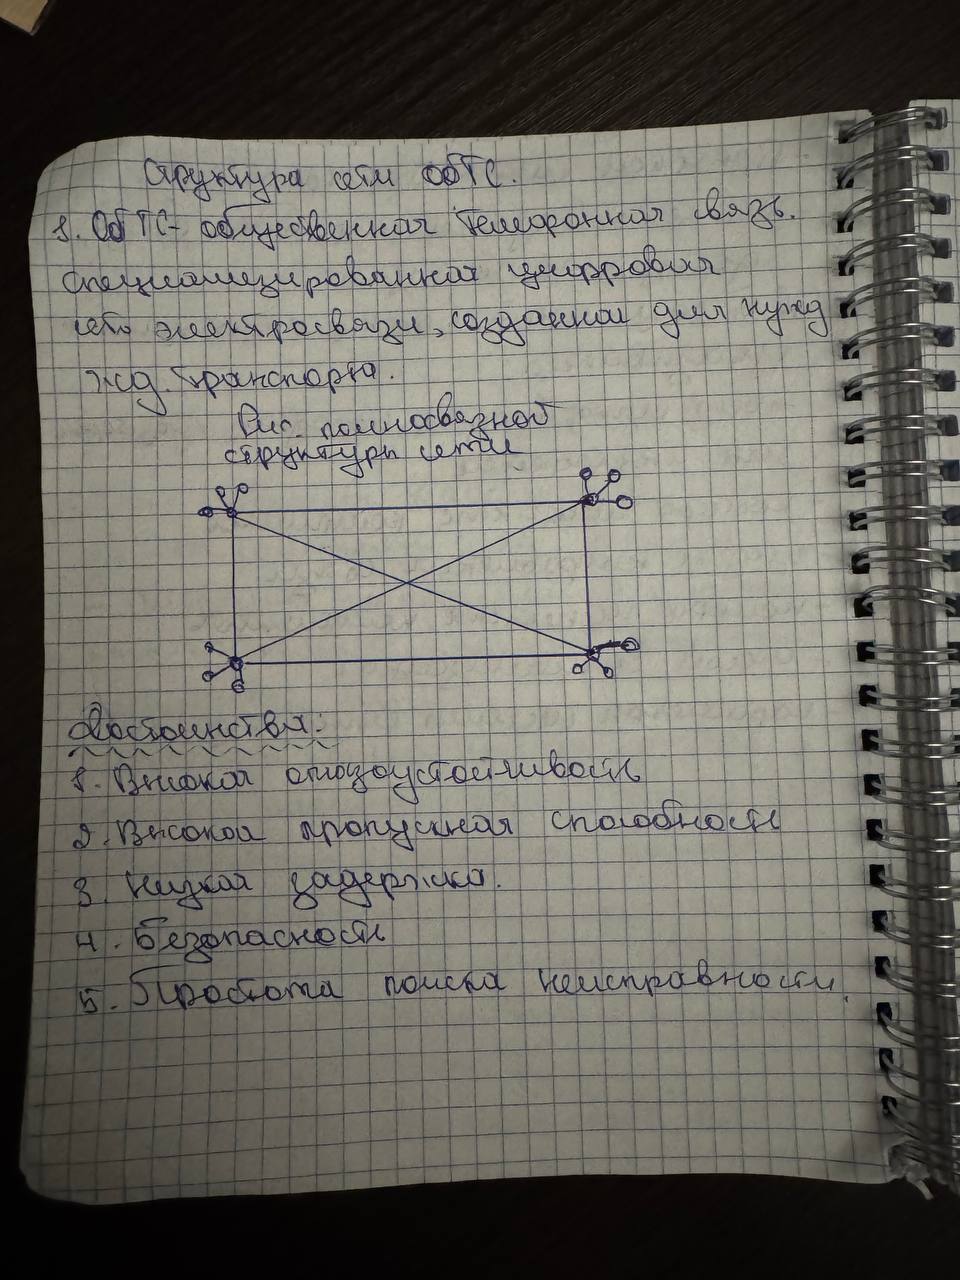 Структура сети ОбТС.
1. ОбТС - общественная телефонная связь.
специализированная цифровая
сеть электросвязи, созданная для нужд
жд. транспорта.
Рис. полносвязной
структуры сети
Достоинства:
1. Высокая отказоустойчивость
2. Высокая пропускная способность
3. Низкая задержка.
4. Безопасность
5. Простота поиска неисправности.